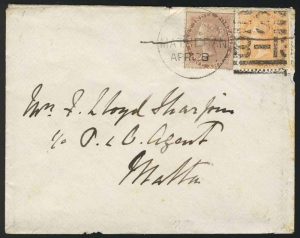 APR 28
Mrs F. Lloyd Sharpin
c/o P. & O. Agent
Malta